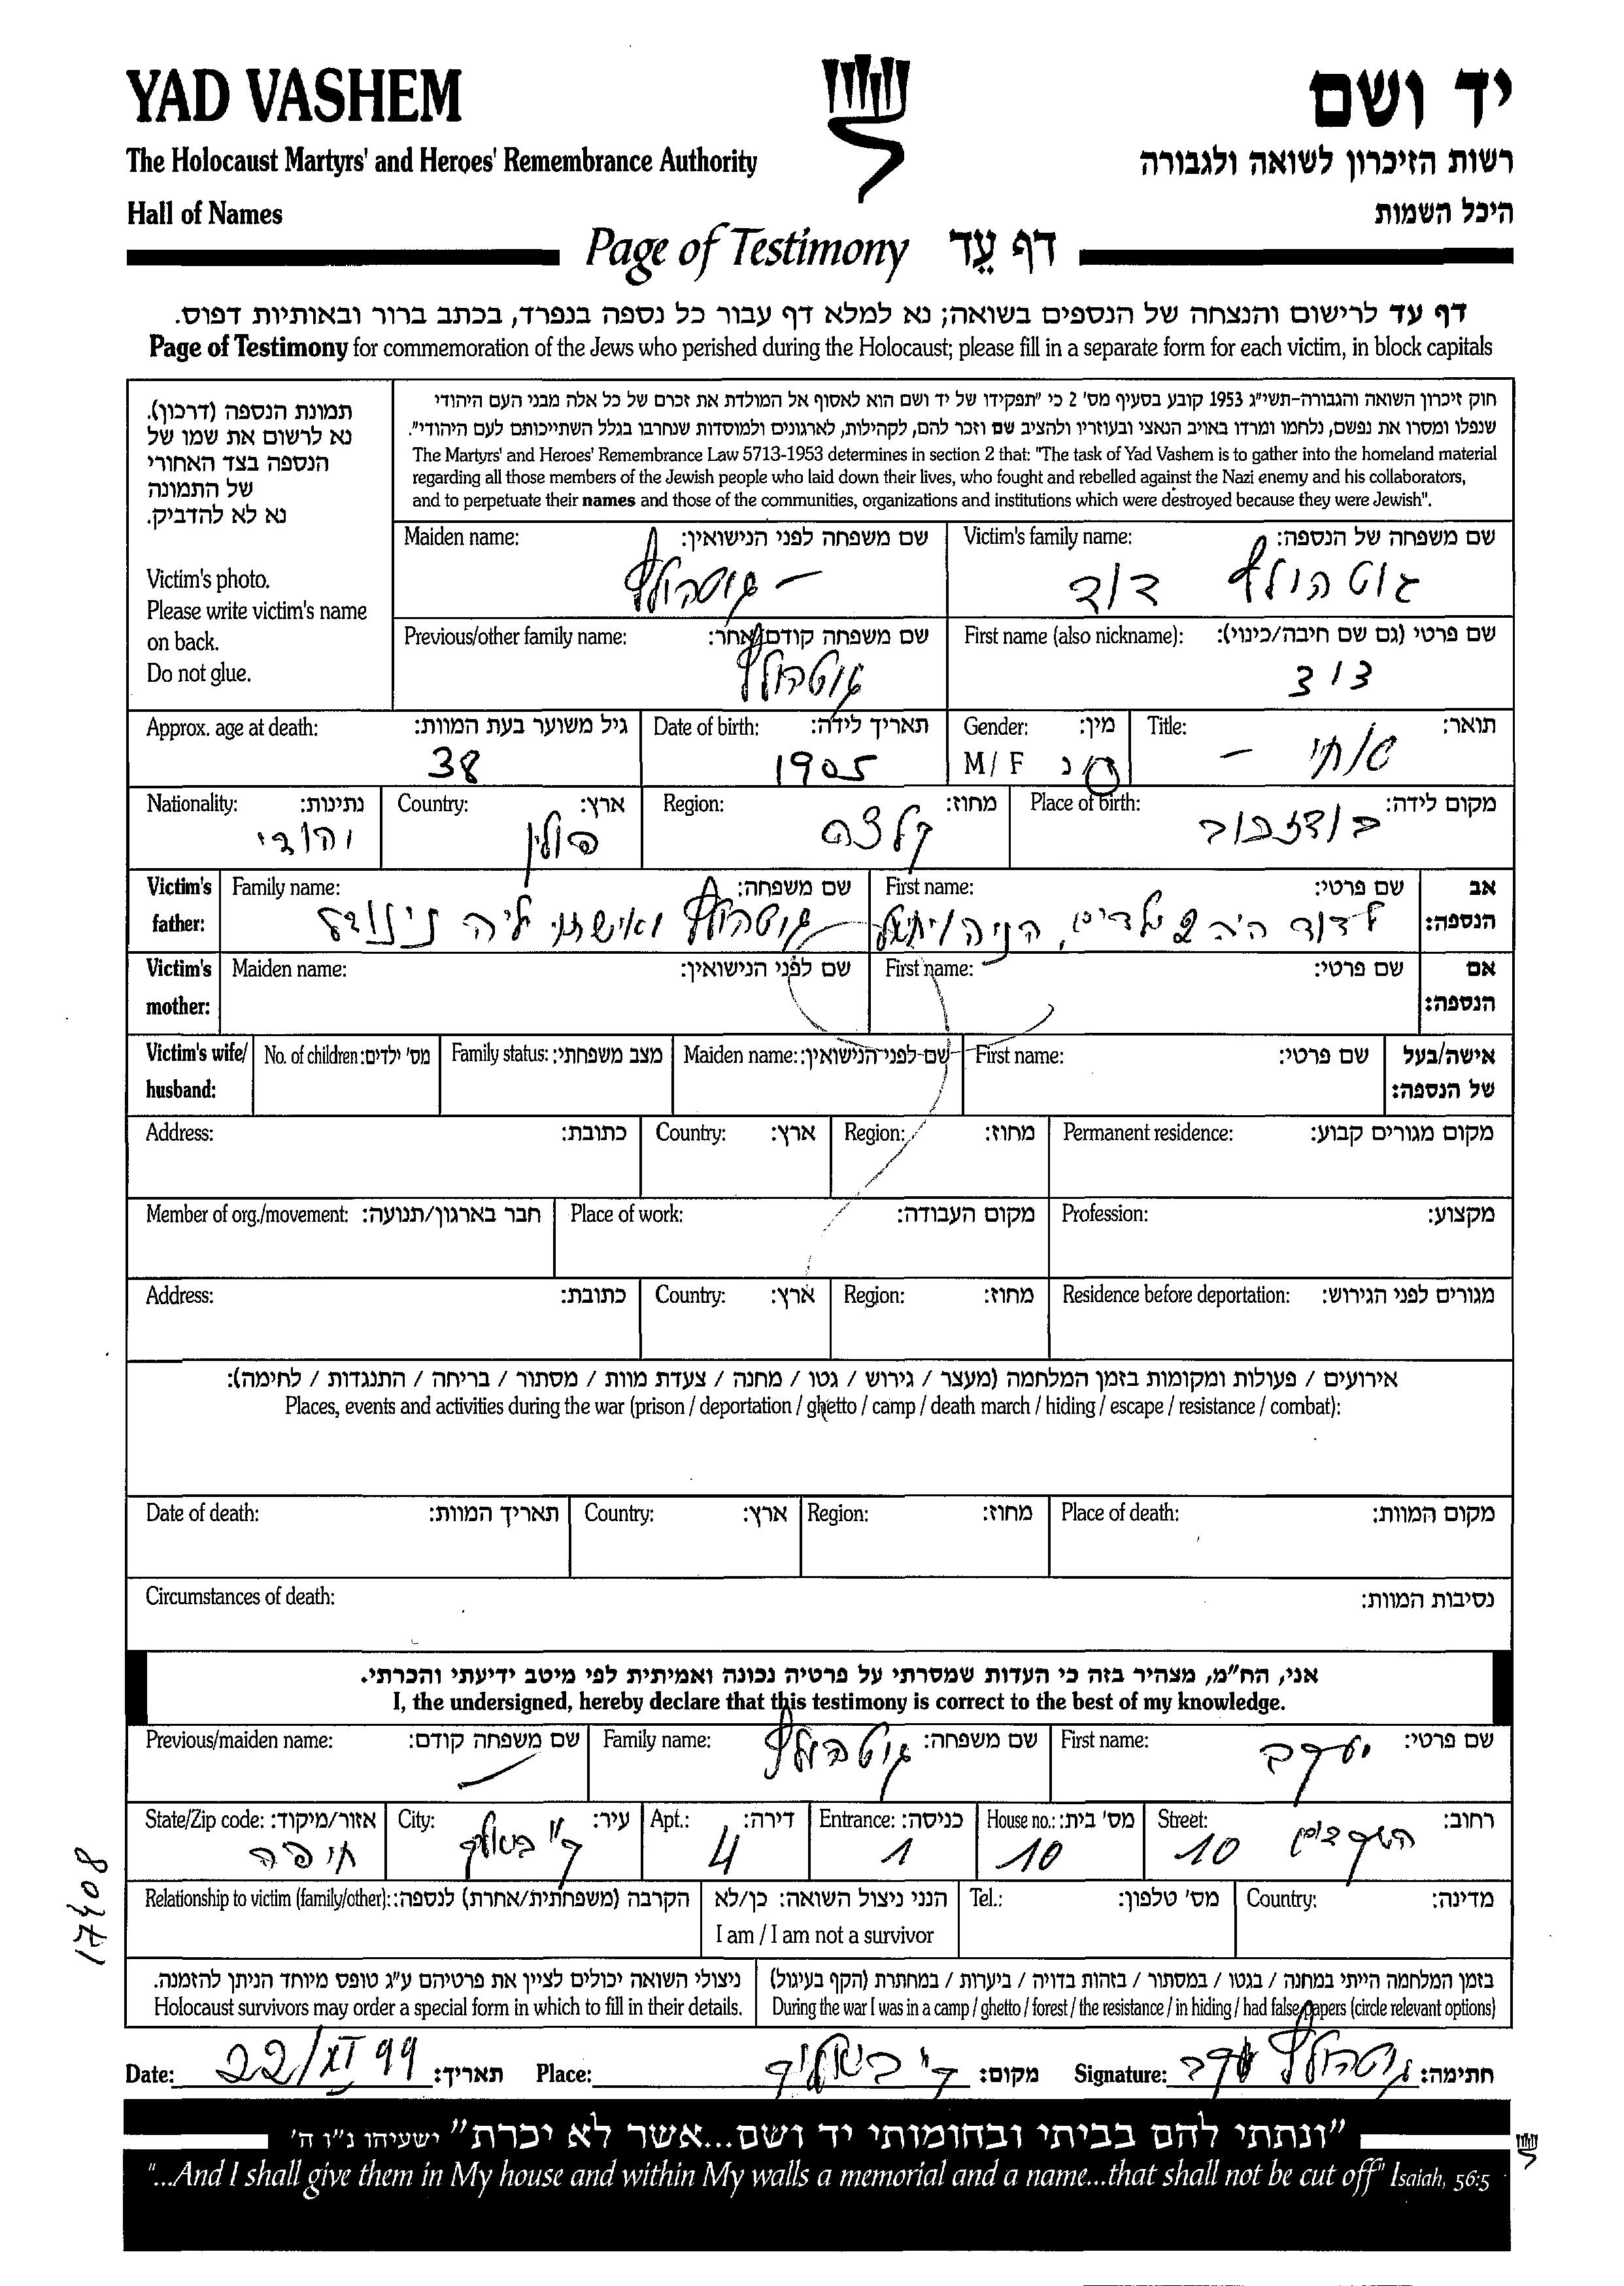 YAD VASHEM
יד ושם
The Holocaust Martyrs' and Heroes' Remembrance Authority
רשות הזיכרון לשואה ולגבורה
Hall of Names
היכל השמות
Page of Testimony דף עֵד
דף עד לרישום והנצחה של הנספים בשואה; נא למלא דף עבור כל נספה בנפרד, בכתב ברור ובאותיות דפוס.
Page of Testimony for commemoration of the Jews who perished during the Holocaust; please fill in a separate form for each victim, in block capitals
תמונת הנספה (דרכון).
נא לרשום את שמו של
הנספה בצד האחורי
של התמונה
נא לא להדביק.
Victim's photo.
Please write victim's name
on back.
Do not glue.
חוק זיכרון השואה והגבורה-תשי"ג 1953 קובע בסעיף מס' 2 כי "תפקידו של יד ושם הוא לאסוף אל המולדת את זכרם של כל אלה מבני העם היהודי
שנפלו ומסרו את נפשם, נלחמו ומרדו באויב הנאצי ובעוזריו ולהציב שם וזכר להם, לקהילות, לארגונים ולמוסדות שנחרבו בגלל השתייכותם לעם היהודי".
The Martyrs' and Heroes' Remembrance Law 5713-1953 determines in section 2 that: "The task of Yad Vashem is to gather into the homeland material
regarding all those members of the Jewish people who laid down their lives, who fought and rebelled against the Nazi enemy and his collaborators,
and to perpetuate their names and those of the communities, organizations and institutions which were destroyed because they were Jewish".
Maiden name: שם משפחה לפני הנישואין: Victim's family name: שם משפחה של הנספה:
– גוטהולץ גוטהולץ דוד
Previous/other family name: שם משפחה קודם/אחר: First name (also nickname): שם פרטי (גם שם חיבה/כינוי):
גוטהולץ דוד
Approx. age at death: גיל משוער בעת המוות: Date of birth: תאריך לידה: Gender: מין: Title: תואר:
38 1905 M / F ז/נ –
Nationality: נתינות: Country: ארץ: Region: מחוז: Place of birth: מקום לידה:
יהודי פולין קלצה
Victim's father: Family name: שם משפחה: First name: שם פרטי: אב הנספה:
לדוד היה 2 ילדים, הניה גוטהולץ ואישתו לאה
Victim's mother: Maiden name: שם לפני הנישואין: First name: שם פרטי: אם הנספה:
Victim's wife/husband: No. of children: מס' ילדים: Family status: מצב משפחתי: Maiden name: שם לפני הנישואין: First name: שם פרטי: אישה/בעל של הנספה:
Address: כתובת: Country: ארץ: Region: מחוז: Permanent residence: מקום מגורים קבוע:
Member of org./movement: חבר בארגון/תנועה: Place of work: מקום העבודה: Profession: מקצוע:
Address: כתובת: Country: ארץ: Region: מחוז: Residence before deportation: מגורים לפני הגירוש:
אירועים / פעולות ומקומות בזמן המלחמה (מעצר / גירוש / גטו / מחנה / צעדת מוות / מסתור / בריחה / התנגדות / לחימה):
Places, events and activities during the war (prison / deportation / ghetto / camp / death march / hiding / escape / resistance / combat):
Date of death: תאריך המוות: Country: ארץ: Region: מחוז: Place of death: מקום המוות:
Circumstances of death: נסיבות המוות:
אני, הח"מ, מצהיר בזה כי העדות שמסרתי על פרטיה נכונה ואמיתית לפי מיטב ידיעתי והכרתי.
I, the undersigned, hereby declare that this testimony is correct to the best of my knowledge.
Previous/maiden name: שם משפחה קודם: Family name: שם משפחה: First name: שם פרטי:
גוטהולץ יעקב
State/Zip code: אזור/מיקוד: City: עיר: Apt.: דירה: Entrance: כניסה: House no.: מס' בית: Street: רחוב:
חיפה ק' ביאליק 4 1 10 10
Relationship to victim (family/other): הקרבה (משפחתית/אחרת) לנספה: הנני ניצול השואה: כן/לא Tel.: מס' טלפון: Country: מדינה:
I am / I am not a survivor
ניצולי השואה יכולים לציין את פרטיהם ע"ג טופס מיוחד הניתן להזמנה. בזמן המלחמה הייתי במחנה / בגטו / במסתור / בזהות בדויה / ביערות / במחתרת (הקף בעיגול)
Holocaust survivors may order a special form in which to fill in their details. During the war I was in a camp / ghetto / forest / the resistance / in hiding / had false papers (circle relevant options)
Date: 22/XI 99 תאריך: Place: ק' ביאליק מקום: Signature: גוטהולץ יעקב חתימה:
17408
"ונתתי להם בביתי ובחומותי יד ושם...אשר לא יכרת" ישעיהו נ"ו ה'
"...And I shall give them in My house and within My walls a memorial and a name...that shall not be cut off" Isaiah, 56:5